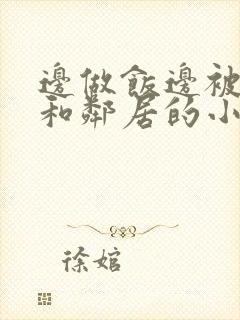 邊做飯邊被
和鄰居的小
徐婠